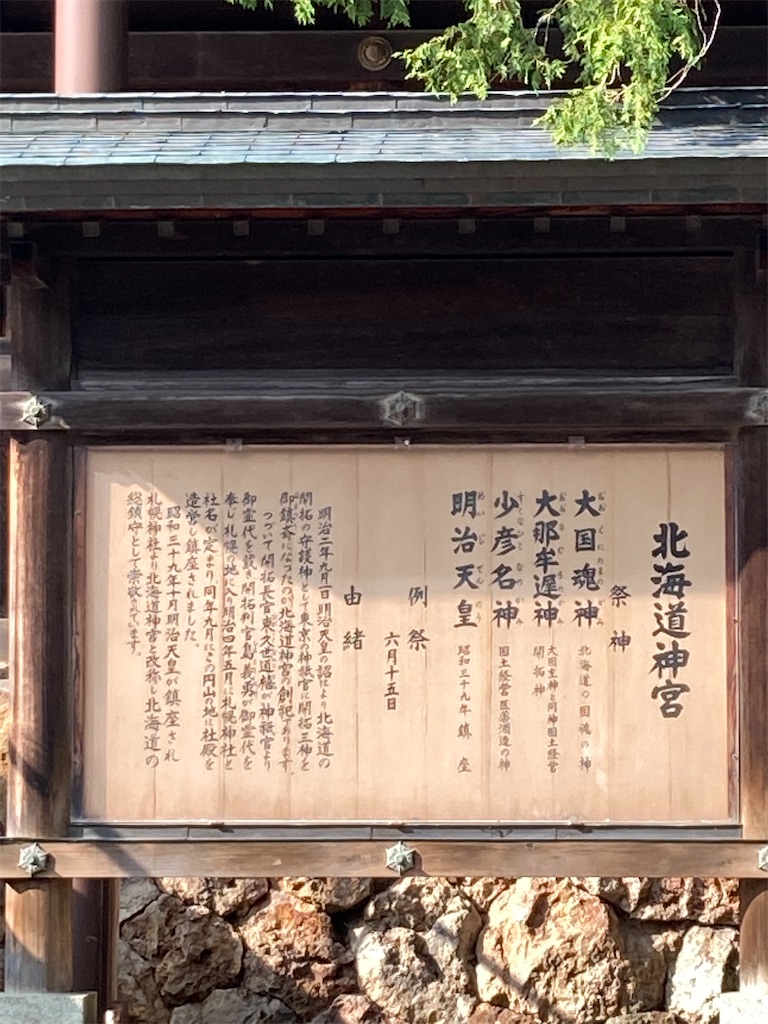 北海道神宮
祭神
大国魂神 北海道の国魂の神
大那牟遅神 大国主神と同神国土経営
開拓神
少彦名神 国土経営医薬酒造の神
明治天皇 昭和三十九年鎮座
例祭
六月十五日
由緒
明治二年九月一日明治天皇の詔により北海道の
開拓の守護神として東京の神祇官に開拓三神を
御鎮斎になったのが北海道神宮の創祀であります。
つづいて開拓長官東久世通禧が神祇官より
御霊代を戴き開拓判官島義勇が御霊代を
奉じ札幌の地に入り明治四年五月に札幌神社と
社名が定まり、同年九月にこの円山の地に社殿を
造営し鎮座されました。
昭和三十九年十月明治天皇が鎮座され
札幌神社より北海道神宮と改称し北海道の
総鎮守として崇敬されています。